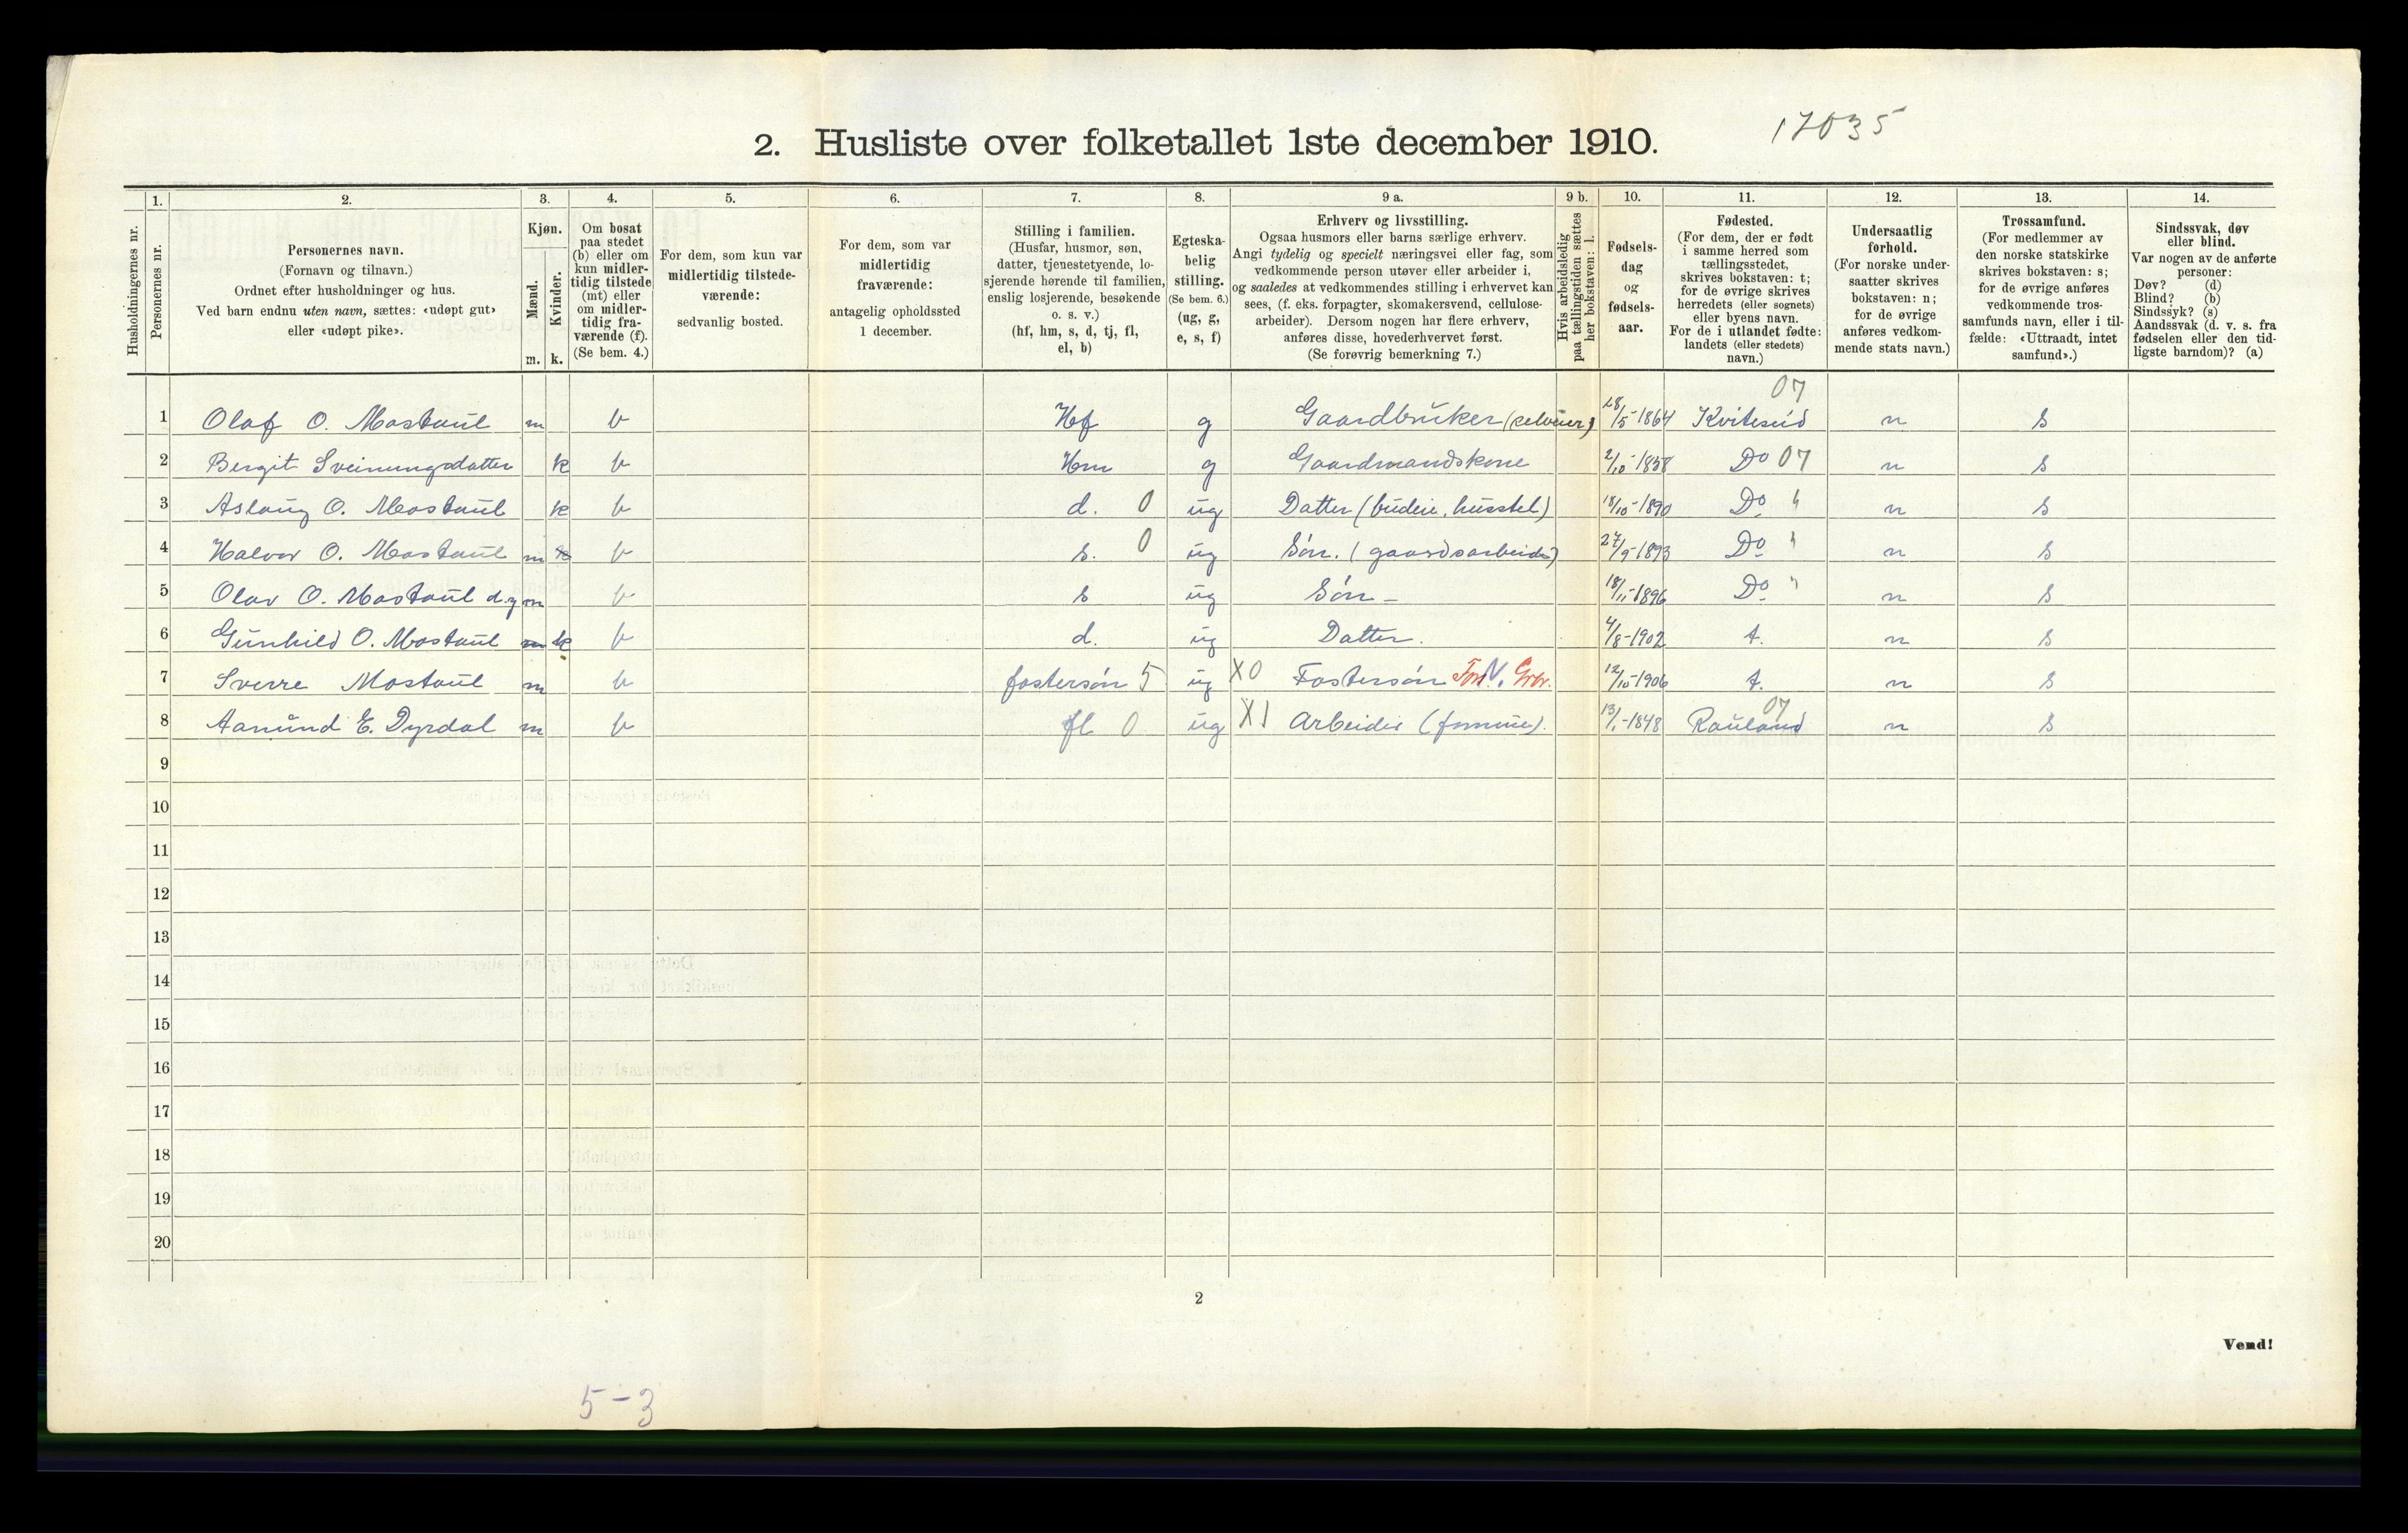 17035
2. Husliste over folketallet 1ste december 1910.
Husholdningernes nr.
1.
Personernes nr.
2.
Personernes navn.
(Fornavn og tilnavn.)
Ordnet efter husholdninger og hus.
Ved barn endnu uten navn, sættes: «udøpt gut»
eller «udøpt pike».
3.
Kjøn.
Mænd.
Kvinder.
m. k.
4.
Om bosat
paa stedet
(b) eller om
kun midler-
tidig tilstede
(mt) eller
om midler-
tidig fra-
værende (f).
(Se bem. 4.)
5.
For dem, som kun var
midlertidig tilstede-
værende:
sedvanlig bosted.
6.
For dem, som var
midlertidig
fraværende:
antagelig opholdssted
1 december.
7.
Stilling i familien.
(Husfar, husmor, søn,
datter, tjenestetyende, lo-
sjerende hørende til familien,
enslig losjerende, besøkende
o. s. v.)
(hf, hm, s, d, tj, fl,
el, b)
8.
Egteska-
belig
stilling.
(Se bem. 6.)
(ug, g,
e, s, f)
9 a.
Erhverv og livsstilling.
Ogsaa husmors eller barns særlige erhverv.
Angi tydelig og specielt næringsvei eller fag, som
vedkommende person utøver eller arbeider i,
og saaledes at vedkommendes stilling i erhvervet kan
sees, (f. eks. forpagter, skomakersvend, cellulose-
arbeider). Dersom nogen har flere erhverv,
anføres disse, hovederhvervet først.
(Se forøvrig bemerkning 7.)
9 b.
Hvis arbeidsledig
paa tællingstiden sættes
her bokstaven: l.
10.
Fødsels-
dag
og
fødsels-
aar.
11.
Fødested.
(For dem, der er født
i samme herred som
tællingsstedet,
skrives bokstaven: t;
for de øvrige skrives
herredets (eller sognets)
eller byens navn.
For de i utlandet fødte:
landets (eller stedets)
navn.)
12.
Undersaatlig
forhold.
(For norske under-
saatter skrives
bokstaven: n;
for de øvrige
anføres vedkom-
mende stats navn.)
13.
Trossamfund.
(For medlemmer av
den norske statskirke
skrives bokstaven: s;
for de øvrige anføres
vedkommende tros-
samfunds navn, eller i til-
fælde: «Uttraadt, intet
samfund».)
14.
Sindssvak, døv
eller blind.
Var nogen av de anførte
personer:
Døv? (d)
Blind? (b)
Sindssyk? (s)
Aandssvak (d. v. s. fra
fødselen eller den tid-
ligste barndom)? (a)
07
1 Olaf O. Mostaul m b Hf g Gaardbruker (selveier) 28/5-1864 Kvitesid n s
2 Bergit Sveinungsdatter k b Hm g Gaardmandskone 2/10-1858 Do 07 n s
3 Aslaug O. Mostaul k b d. 0 ug Datter (budeie, husstel) 18/10-1890 Do " n s
4 Halvor O. Mostaul m k b s. 0 ug Søn. (gaardsarbeide) 27/9-1893 Do " n s
5 Olav O. Mostaul d.y m b s ug Søn - 18/11-1896 Do " n s
6 Gunhild O. Mostaul m k b d. ug Datter. 4/8-1902 t. n s
7 Sverre Mostaul m b fostersøn 5 ug X0 Fostersøn 12/10-1906 t. n s
8 Aanund E. Dyrdal m b fl 0 ug X1 Arbeider 13/1-1848 Rauland 07 n s
9
10
11
12
13
14
15
16
17
18
19
20
2
Vend!
5-3